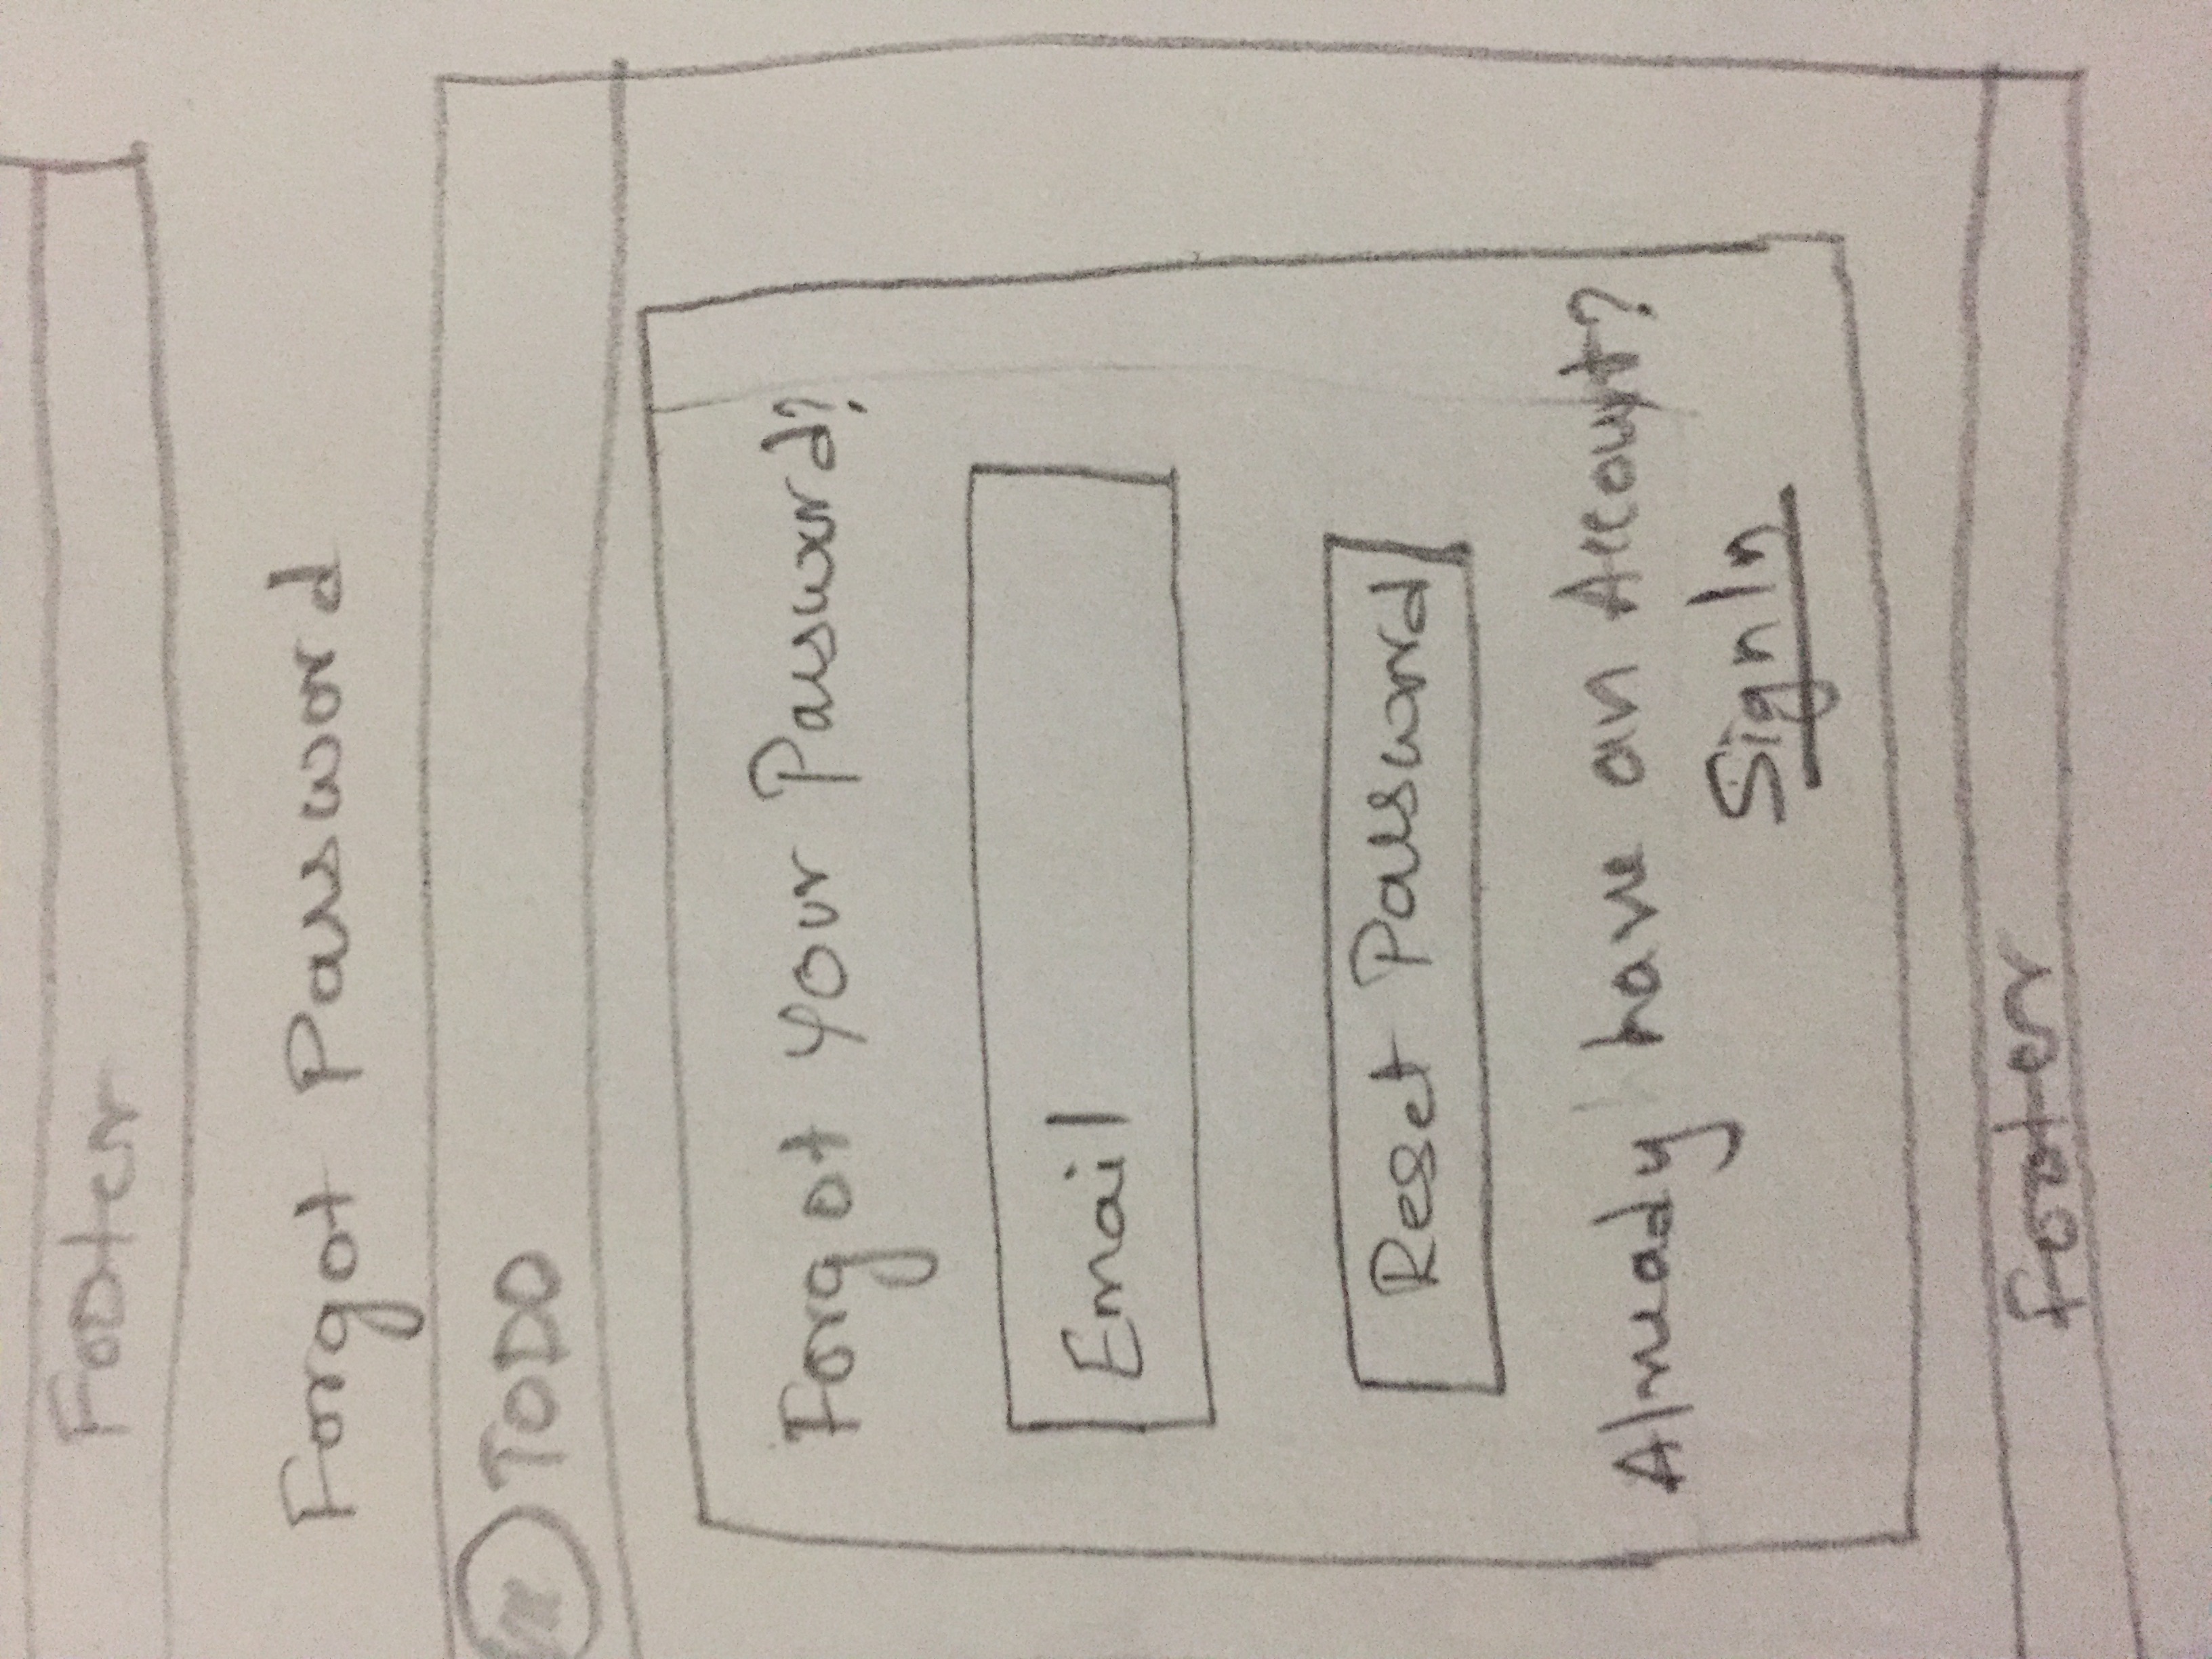 Footer
Forgot Password
TODO
Forgot Your Password?
Email
Reset Password
Already have an Account?
SignIn
Footer